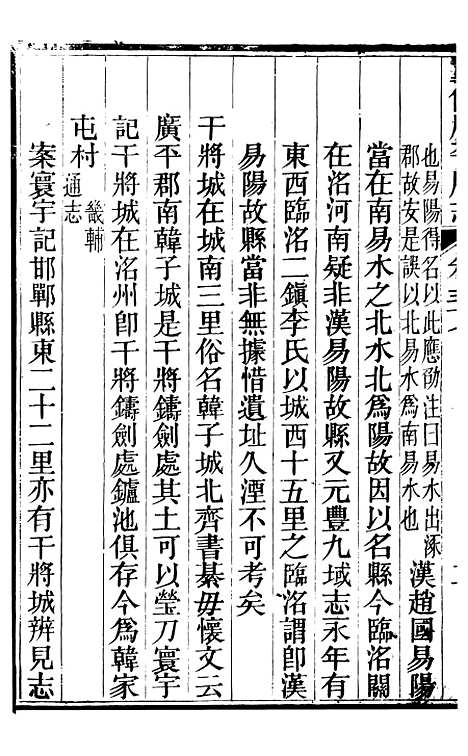 也易陽得名以此應劭注曰易水出涿
郡故安是誤以北易水爲南易水也
漢趙國易陽
當在南易水之北水北爲陽故因以名縣今臨洺關
在洺河南疑非漢易陽故縣又元豐九域志永年有
東西臨洺二鎭李氏以城西十五里之臨洺謂卽漢
易陽故縣當非無據惜遺址久湮不可考矣
干將城在城南三里俗名韓子城北齊書綦毋懷文云
廣平郡南韓子城是干將鑄劍處其土可以瑩刀寰宇
記干將城在洺州卽干將鑄劍處鑪池俱存今爲韓家
屯村畿輔
通志
案寰宇記邯鄲縣東二十二里亦有干將城辨見志